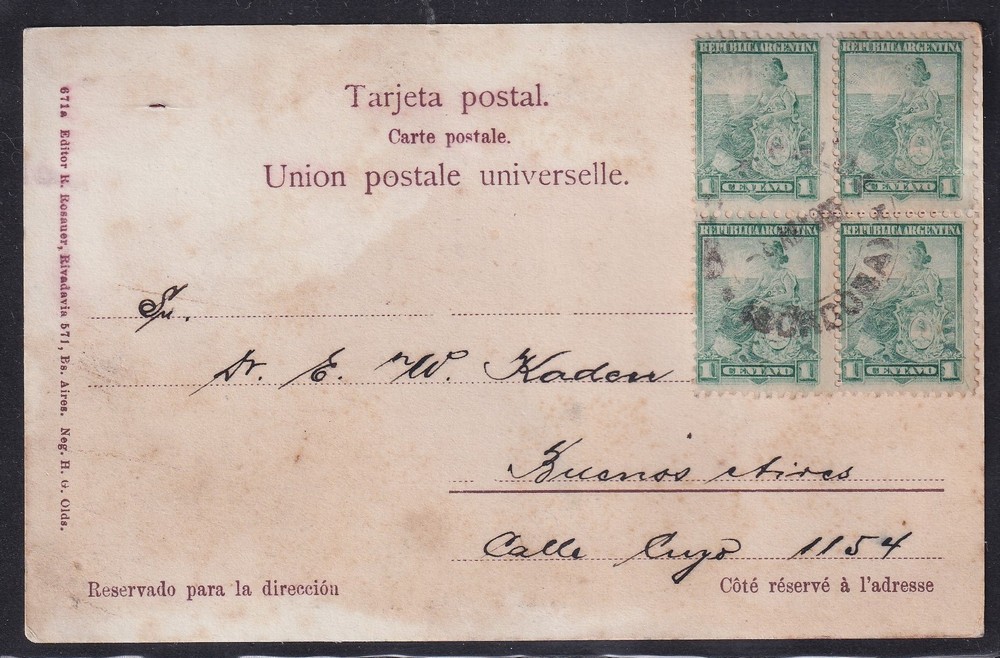 Tarjeta postal.
Carte postale.
Union postale universelle.
671a Editor R. Rosauer, Rivadavia 571, Bs. Aires. Neg. H. G. Olds.
REPÚBLICA ARGENTINA
1 CENTAVO 1
REPÚBLICA ARGENTINA
1 CENTAVO 1
REPÚBLICA ARGENTINA
1 CENTAVO 1
REPÚBLICA ARGENTINA
1 CENTAVO 1
CORDOBA
Sr.
Dr. E. W. Kaden
Buenos Aires
Calle Cuyo 1154
Reservado para la dirección
Côté réservé à l'adresse